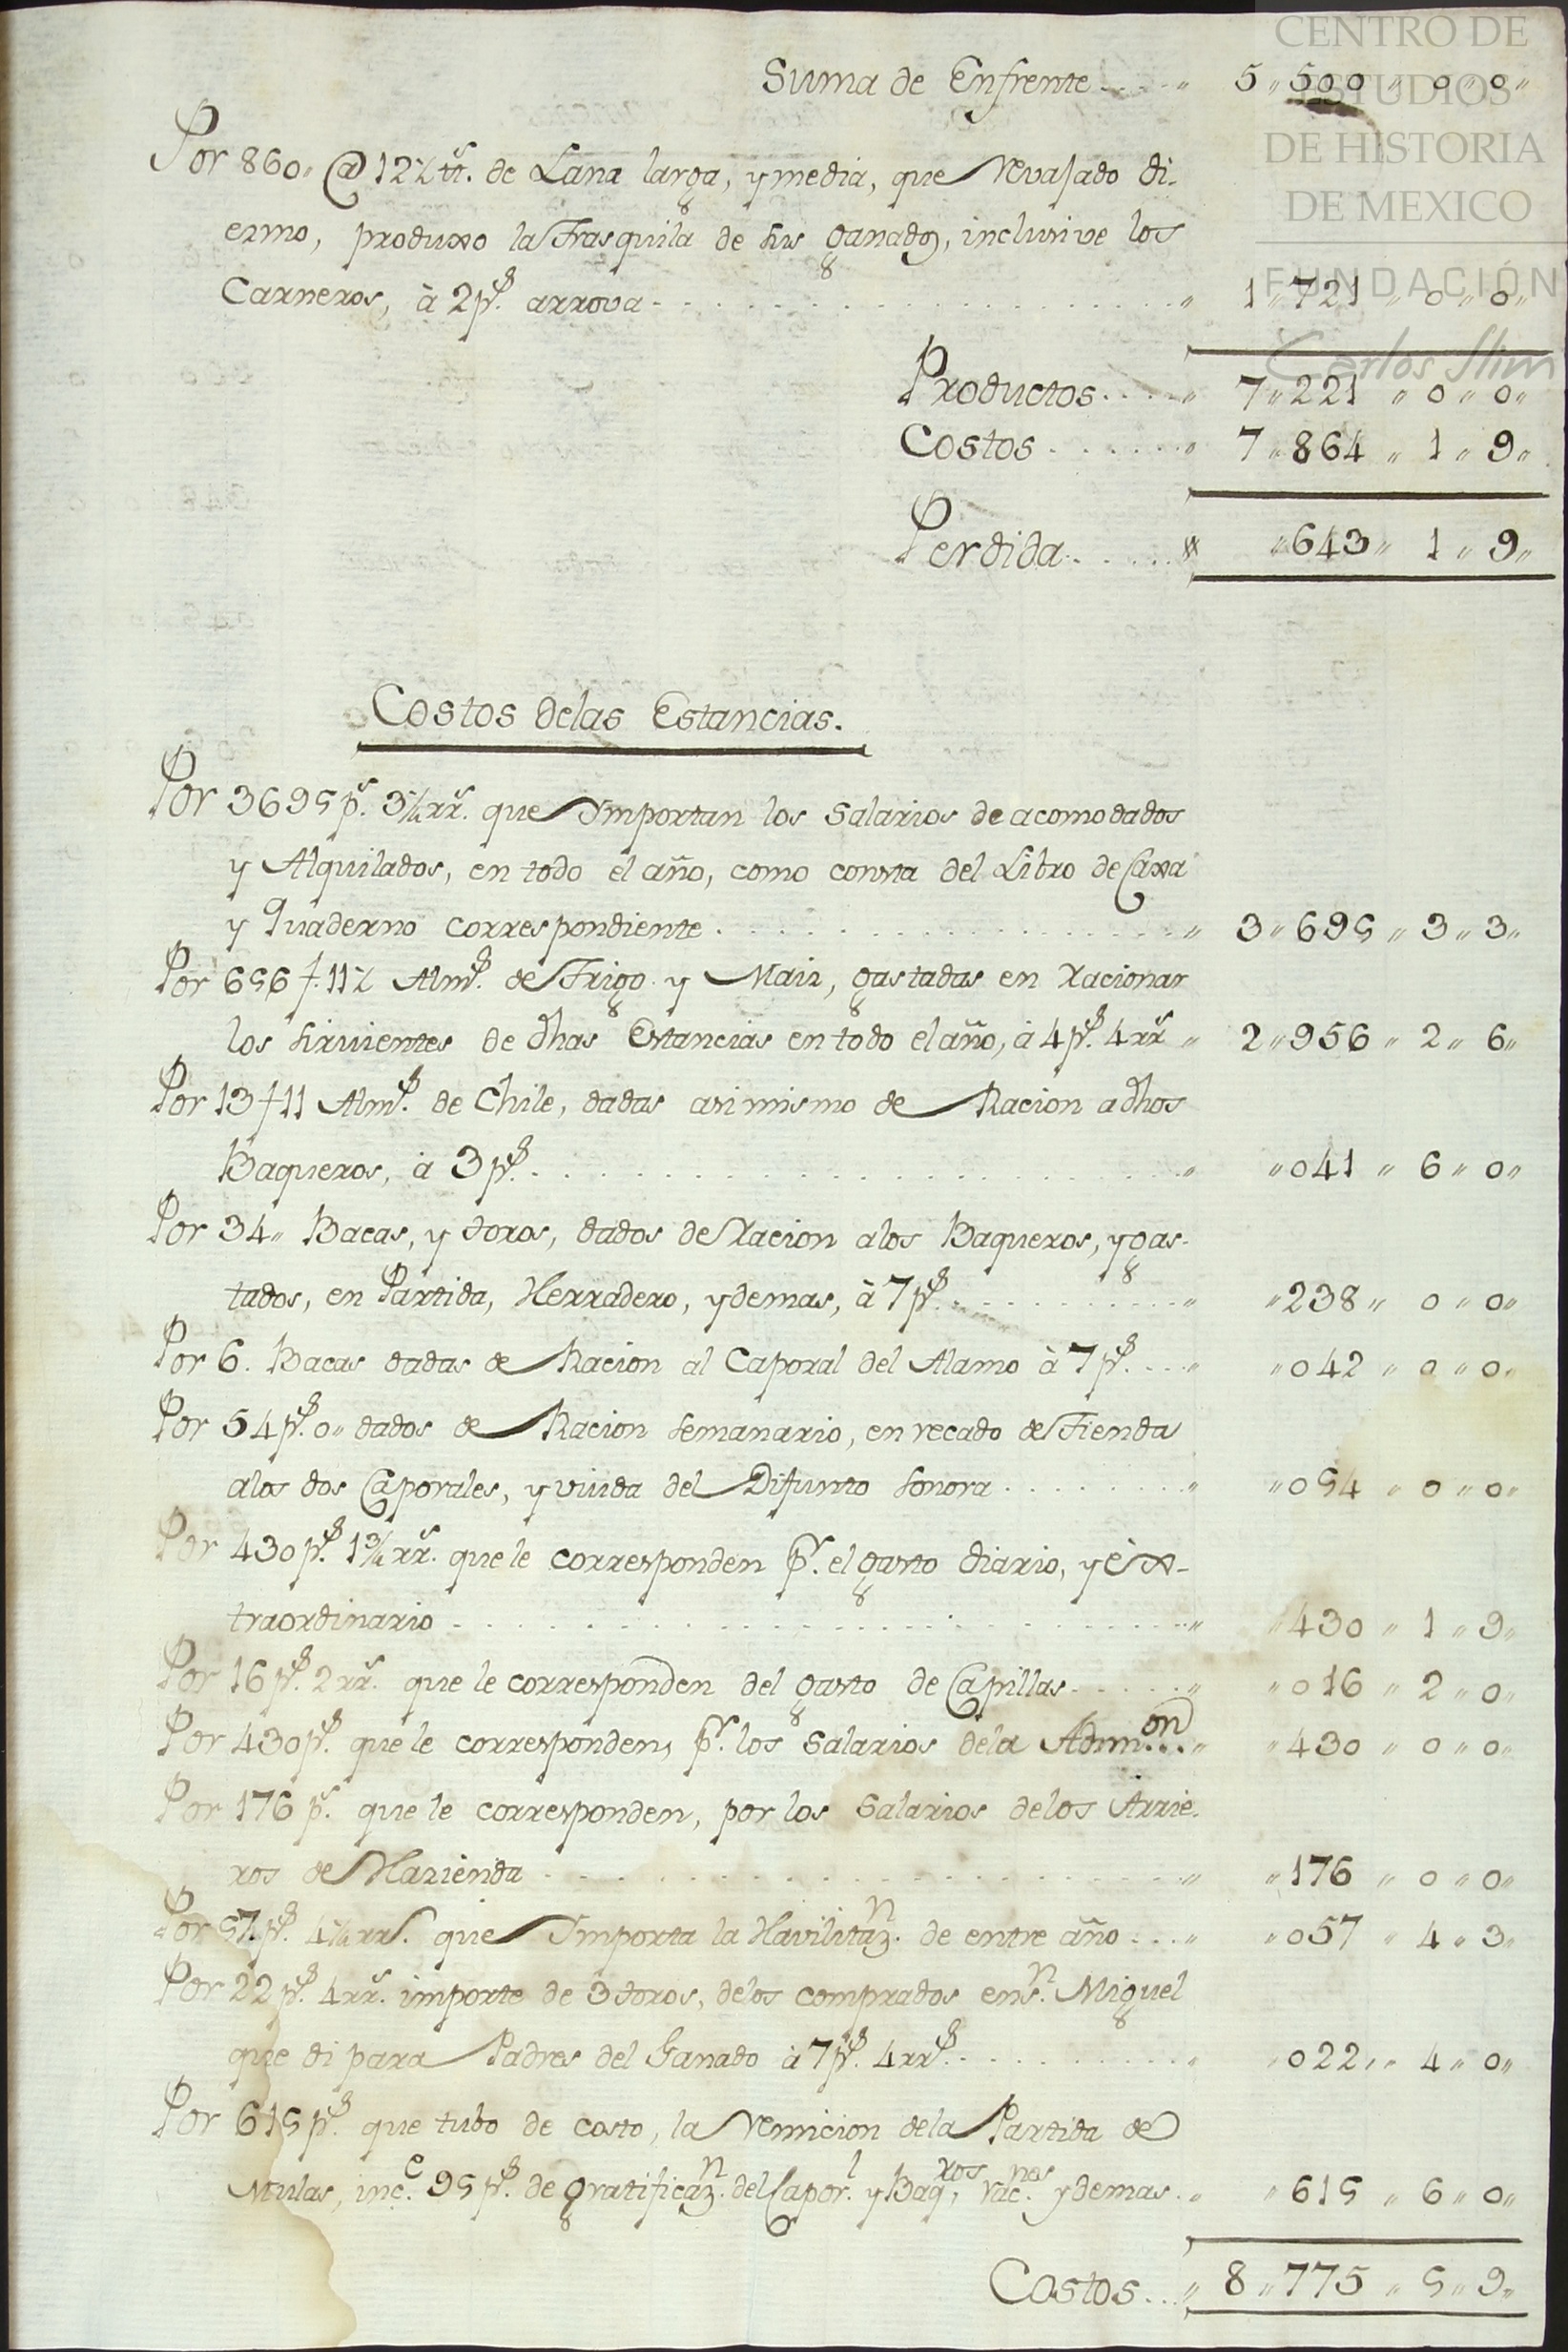 CENTRO DE
ESTUDIOS
DE HISTORIA
DE MEXICO
FUNDACIÓN
Carlos Slim
Suma de Enfrente..... „ 5„500„ 0„ 0„
Por 860„ @ 12½ tt.s de Lana larga, y media, que revajado di-
ezmo, produxo la Trasquila de sus ganados, inclusive los
Carneros, à 2 p.s arrova . . . . . „ 1„721„ 0„ 0„
Productos..... „ 7„221„ 0„ 0„
Costos...... „ 7„864„ 1„ 9„
Perdida...... „ „643„ 1„ 9„
Costos delas Estancias.
Por 3695 p.s 3¼ rr.s que Ymportan los Salarios de acomodados
y Alquilados, en todo el año, como consta del Libro de Caxa
y Quaderno correspondiente . . . . . „ 3„695„ 3„ 3„
Por 656 f. 11½ Alm.s de Trigo y Maiz, gastadas en racionar
los sirvientes de dhas Estancias en todo el año, à 4 p.s 4 rr.s „ 2„956„ 2„ 6„
Por 13 f 11 Alm.s de Chile, dadas asimismo de Racion a dhos
Baqueros, à 3 p.s . . . . . „ „041„ 6„ 0„
Por 34„ Bacas, y toros, dados de racion alos Baqueros, y gas-
tados, en Partida, Herradero, y demas, à 7 p.s . . . . . „ „238„ 0„ 0„
Por 6. Bacas dadas de Racion al Caporal del Alamo à 7 p.s ... „ „042„ 0„ 0„
Por 54 p.s 0„ dados de Racion semanario, en recado de Tienda
alos dos Caporales, y viuda del Difunto Sonora . . . . . „ „054„ 0„ 0„
Por 430 p.s 1¾ rr.s que le corresponden p.r el gasto diario, y èx-
traordinario . . . . . „ „430„ 1„ 9„
Por 16 p.s 2 rr.s que le corresponden del gasto de Capillas..... „ „016„ 2„ 0„
Por 430 p.s que le corresponden, p.r los Salarios dela Admi.on... „ „430„ 0„ 0„
Por 176 p.s que le corresponden, por los Salarios delos Arrie-
ros de Hazienda . . . . . „ „176„ 0„ 0„
Por 57 p.s 4¼ rr.s que Ymporta la Havilitaz.n de entre año ... „ „057„ 4„ 3„
Por 22 p.s 4 rr.s importe de 3 toros, delos comprados en S.n Miguel
que di para Padres del Ganado à 7 p.s 4 rr.s . . . . . „ „022„ 4„ 0„
Por 615 p.s que tubo de costo, la remicion dela Partida de
Mulas, inc.e 95 p.s de gratificaz.n del Capor.l y Baq.ros, rac.nes y demas.. „ „615„ 6„ 0„
Costos... „ 8„775„ 5„ 9„